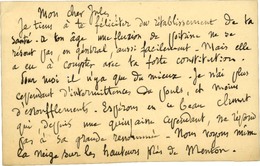 Mon cher Jules,
Je tiens à te féliciter du rétablissement de ta
santé. à ton âge une fluxion de poitrine ne se
résout pas en général aussi facilement. Mais elle
a eu à compter avec ta forte constitution.
Pour moi il n'y a que du mieux. Je n'ai plus
cependant d'intermittences du pouls, et moins
d'essoufflements. Espérons en ce beau climat
qui, depuis une quinzaine cependant, ne répond
pas à sa grande renommée. Nous voyons même
la neige sur les hauteurs près de Menton.